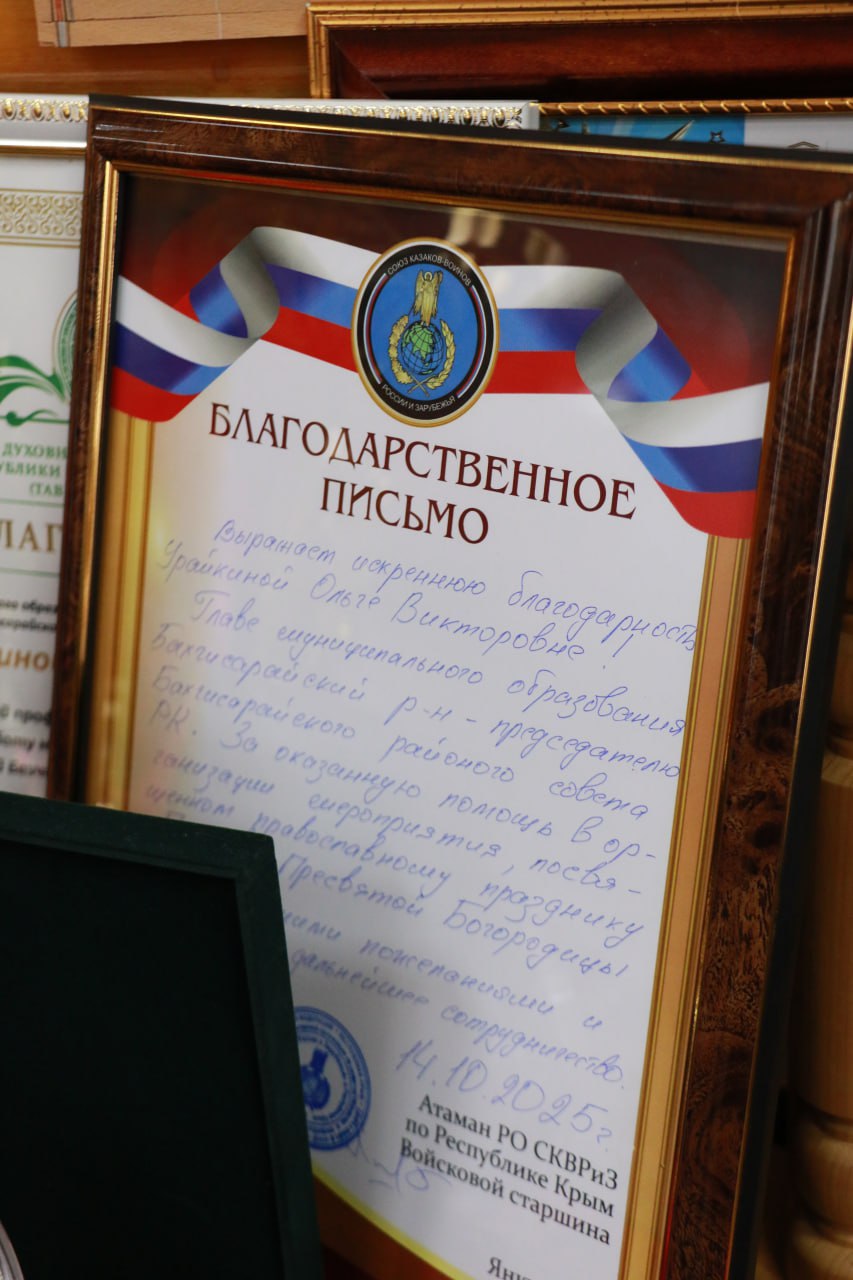 СОЮЗ КАЗАКОВ-ВОИНОВ
РОССИИ И ЗАРУБЕЖЬЯ
БЛАГОДАРСТВЕННОЕ
ПИСЬМО
Выражает искреннюю благодарность
Урайкиной Ольге Викторовне!
Главе муниципального образования
Бахчисарайский р-н - председателю
Бахчисарайского районого совета
РК. За оказанную помощь в ор-
ганизации мероприятия, посвя-
щенном православному празднику
Пресвятой Богородицы
пожеланиями и
дальнейшее сотрудничество.
14.10.2025г.
Атаман РО СКВРиЗ
по Республике Крым
Войсковой старшина
ДУХОВ
(ТАВ